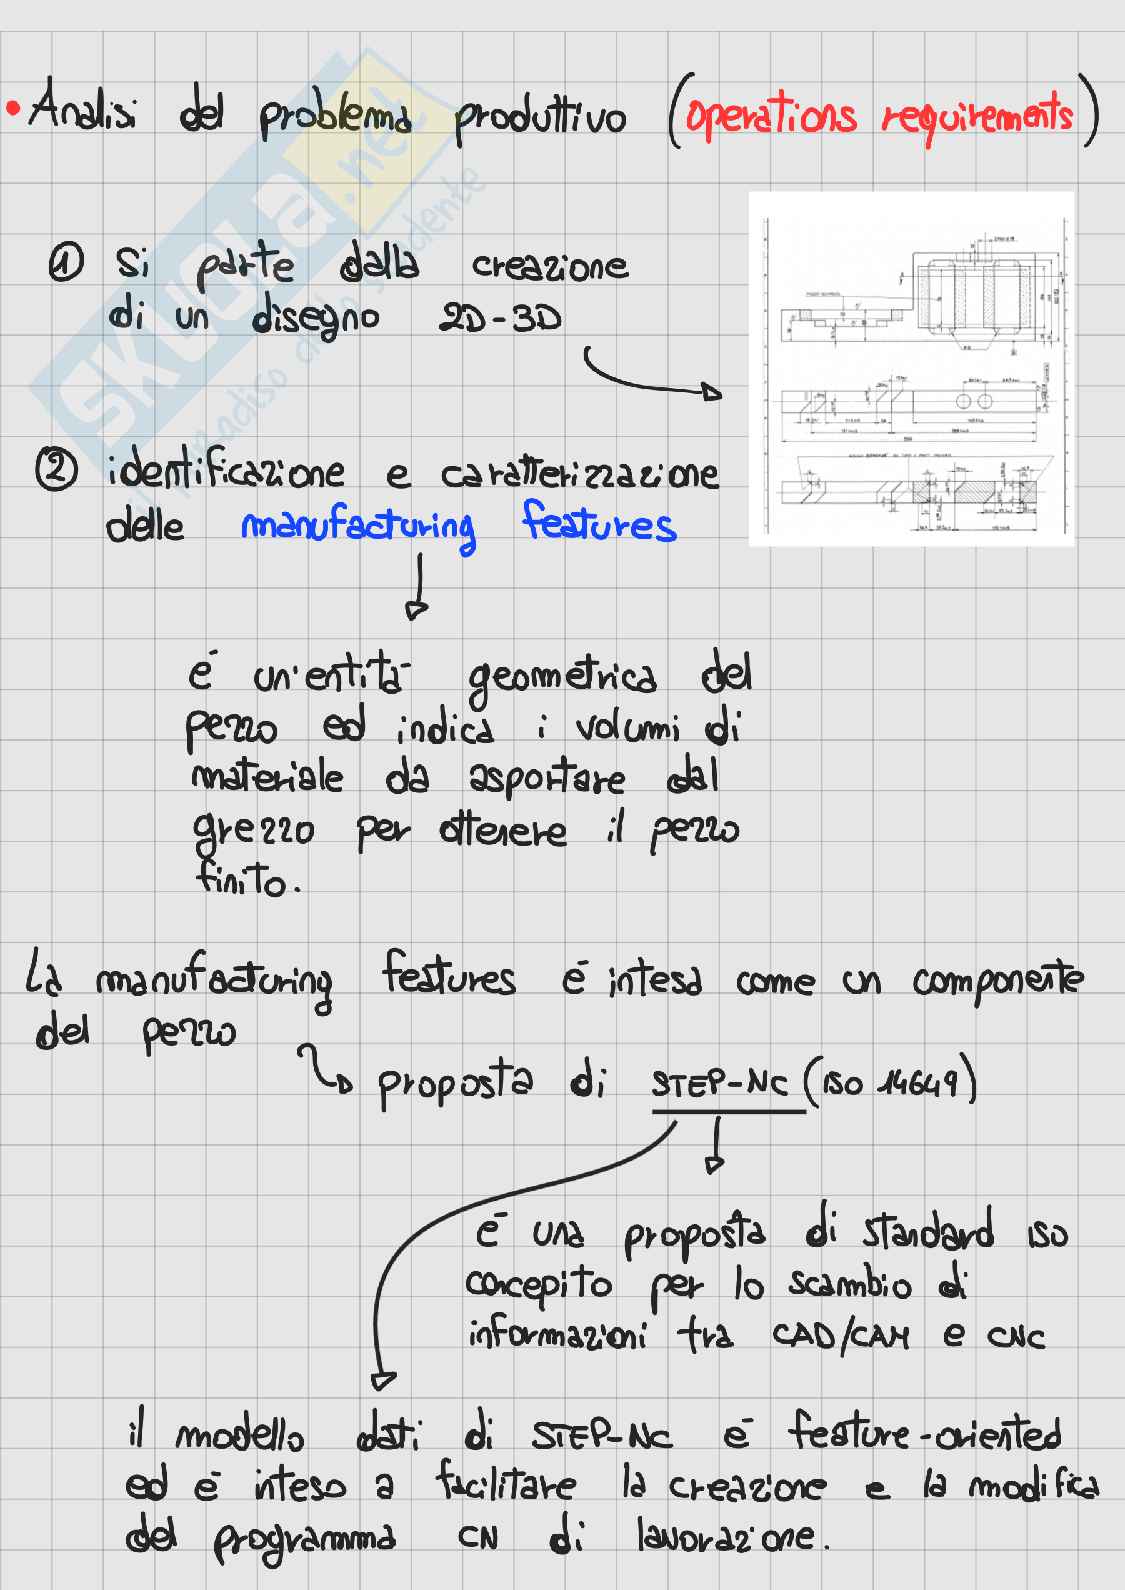 • Analisi del problema produttivo (operations requirements)
① Si parte dalla creazione
di un disegno 2D-3D
② identificazione e caratterizzazione
delle manufacturing features
è un'entità geometrica del
pezzo ed indica i volumi di
materiale da asportare dal
grezzo per ottenere il pezzo
finito.
La manufacturing features è intesa come un componente
del pezzo
proposta di STEP-NC (ISO 14649)
è una proposta di standard iso
concepito per lo scambio di
informazioni tra CAD/CAM e CNC
il modello dati di STEP-NC è feature-oriented
ed è inteso a facilitare la creazione e la modifica
del programma CN di lavorazione.
SKUOLA.net
il paradiso dello studente